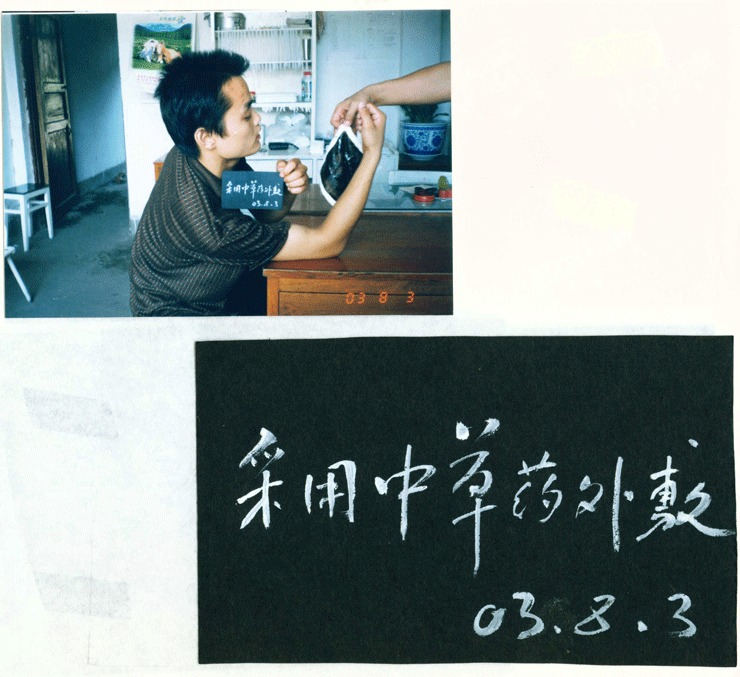 采用中草药外敷
03.8.3
03 8 3
采用中草药外敷
03.8.3